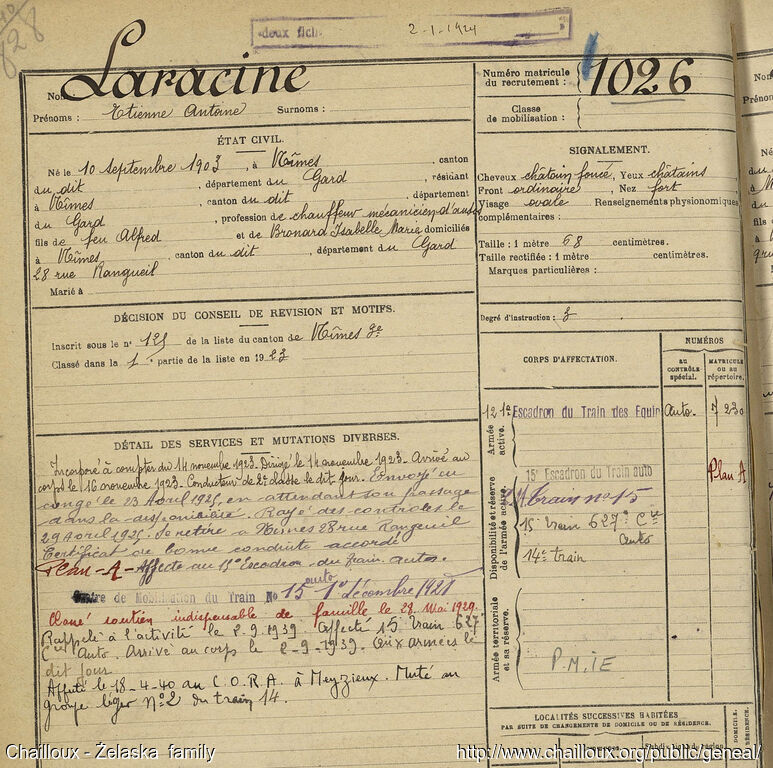 828
deux fich.
2-1-1924
Nom : Laracine
Prénoms : Etienne Antoine Surnoms :
Numéro matricule du recrutement : 1026
Classe de mobilisation :
ÉTAT CIVIL.
Né le 10 Septembre 1903, à Nîmes, canton
du dit, département du Gard, résidant
à Nîmes, canton du dit, département
du Gard, profession de chauffeur mécanicien d'autos
fils de feu Alfred et de Bronard Isabelle Maria domiciliés
à Nîmes, canton du dit, département du Gard
28 rue Rangueil
Marié à
SIGNALEMENT.
Cheveux châtain foncé, Yeux châtains
Front ordinaire, Nez fort
Visage ovale, Renseignements physionomiques
complémentaires :
Taille : 1 mètre 68 centimètres.
Taille rectifiée : 1 mètre centimètres.
Marques particulières :
DÉCISION DU CONSEIL DE REVISION ET MOTIFS.
Inscrit sous le n° 125 de la liste du canton de Nîmes 3e
Classé dans la 1e partie de la liste en 1923
Degré d'instruction : 3
DÉTAIL DES SERVICES ET MUTATIONS DIVERSES.
Incorporé à compter du 14 novembre 1923. Dirigé le 14 novembre 1923. Arrivé au
corps le 16 novembre 1923. Conducteur de 2e classe le dit jour. Envoyé en
congé le 23 Avril 1925, en attendant son passage
dans la disponibilité. Rayé des contrôles le
29 Avril 1925. Se retire à Nîmes 28 rue Rangueil
Certificat de bonne conduite accordé
Plan A - Affecté au 15e Escadron du Train autos.
Centre de Mobilisation du Train No 15 auto 1er décembre 1927
Classé soutien indispensable de famille le 28 Mai 1929.
Rappelé à l'activité le 2-9-1939 Affecté 15e train 627
Cie Auto. Arrivé au corps le 2-9-1939. Aux armées le
dit jour
Affecté le 18-4-40 au C.O.R.A. à Meyzieux. Muté au
groupe léger No 2 du train 14.
CORPS D'AFFECTATION.
NUMÉROS
AU CONTRÔLE spécial.
MATRICULE OU AU répertoire.
Armée active.
Escadron du Train des Equip
Auto.
7230
Disponibilité et réserve de l'armée active.
15e Escadron du Train auto
Plan A
train no 15
15e train 627e Cie
auto
14e train
Armée territoriale et sa réserve.
P.M.IE
LOCALITÉS SUCCESSIVES HABITÉES
PAR SUITE DE CHANGEMENTS DE DOMICILE OU DE RÉSIDENCE.
DOMICILE.
RÉSIDENCE
Chailloux - Żelaska family
http://www.chailloux.org/public/geneal/